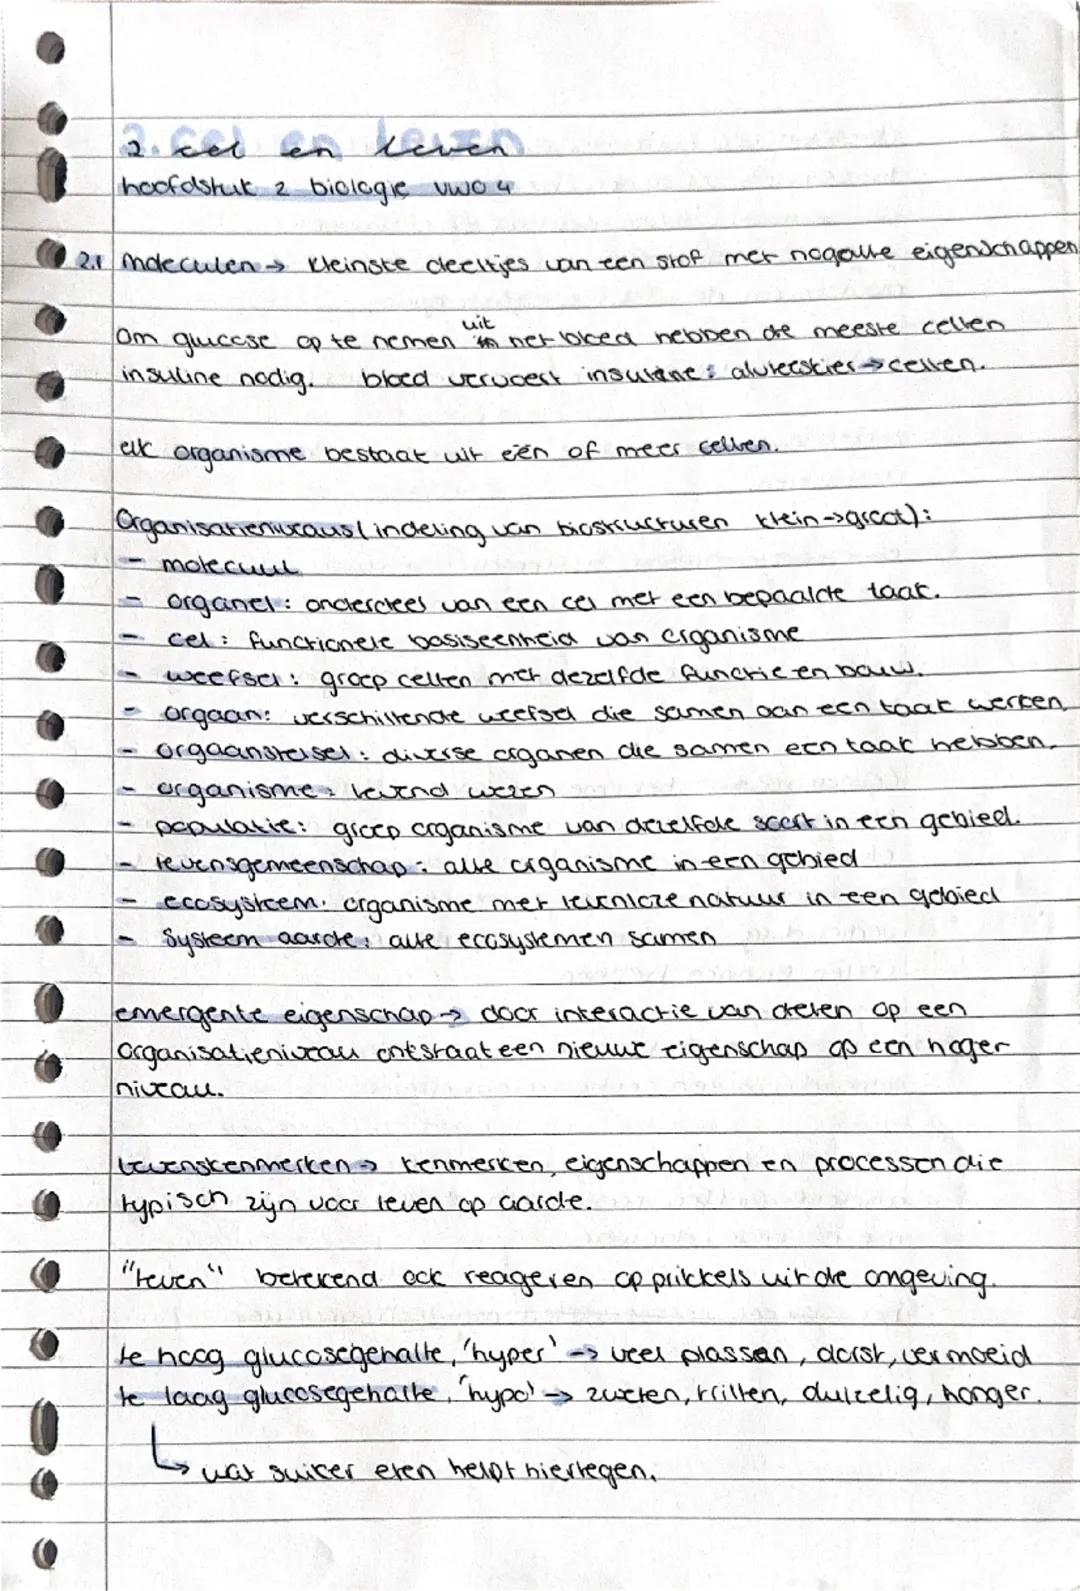 2. cel en leven
hoofdstuk 2 biologie vwo 4
2.1 moleculen → kleinste deeltjes van een stof met nog alle eigenschappen
Om glucose op te nemen uit het bloed hebben de meeste cellen
insuline nodig. bloed vervoert insuline: alvleesklier → cellen.
elk organisme bestaat uit één of meer cellen.
Organisatieniveaus (indeling van biostructuren klein → groot):
- molecuul
- organel: onderdeel van een cel met een bepaalde taak.
- cel: functionele basiseenheid van organisme
- weefsel: groep cellen met dezelfde functie en bouw.
- orgaan: verschillende weefsel die samen aan een taak werken,
- orgaanstelsel: diverse organen die samen een taak hebben.
- organisme: levend wezen
- populatie: groep organisme van dezelfde soort in een gebied.
- levensgemeenschap: alle organisme in een gebied
- ecosysteem: organisme met levenloze natuur in een gebied
- Systeem aarde: alle ecosystemen samen
emergente eigenschap → door interactie van delen op een
organisatieniveau ontstaat een nieuwe eigenschap op een hoger
niveau.
Levenskenmerken → kenmerken, eigenschappen en processen die
typisch zijn voor leven op aarde.
"leven" betekend ook reageren op prikkels uit de omgeving.
te hoog glucosegehalte, 'hyper' → veel plassen, dorst, vermoeid
te laag glucosegehalte, 'hypo' → zweten, trillen, duizelig, honger.
↳ wat suiker eten helpt hiertegen.